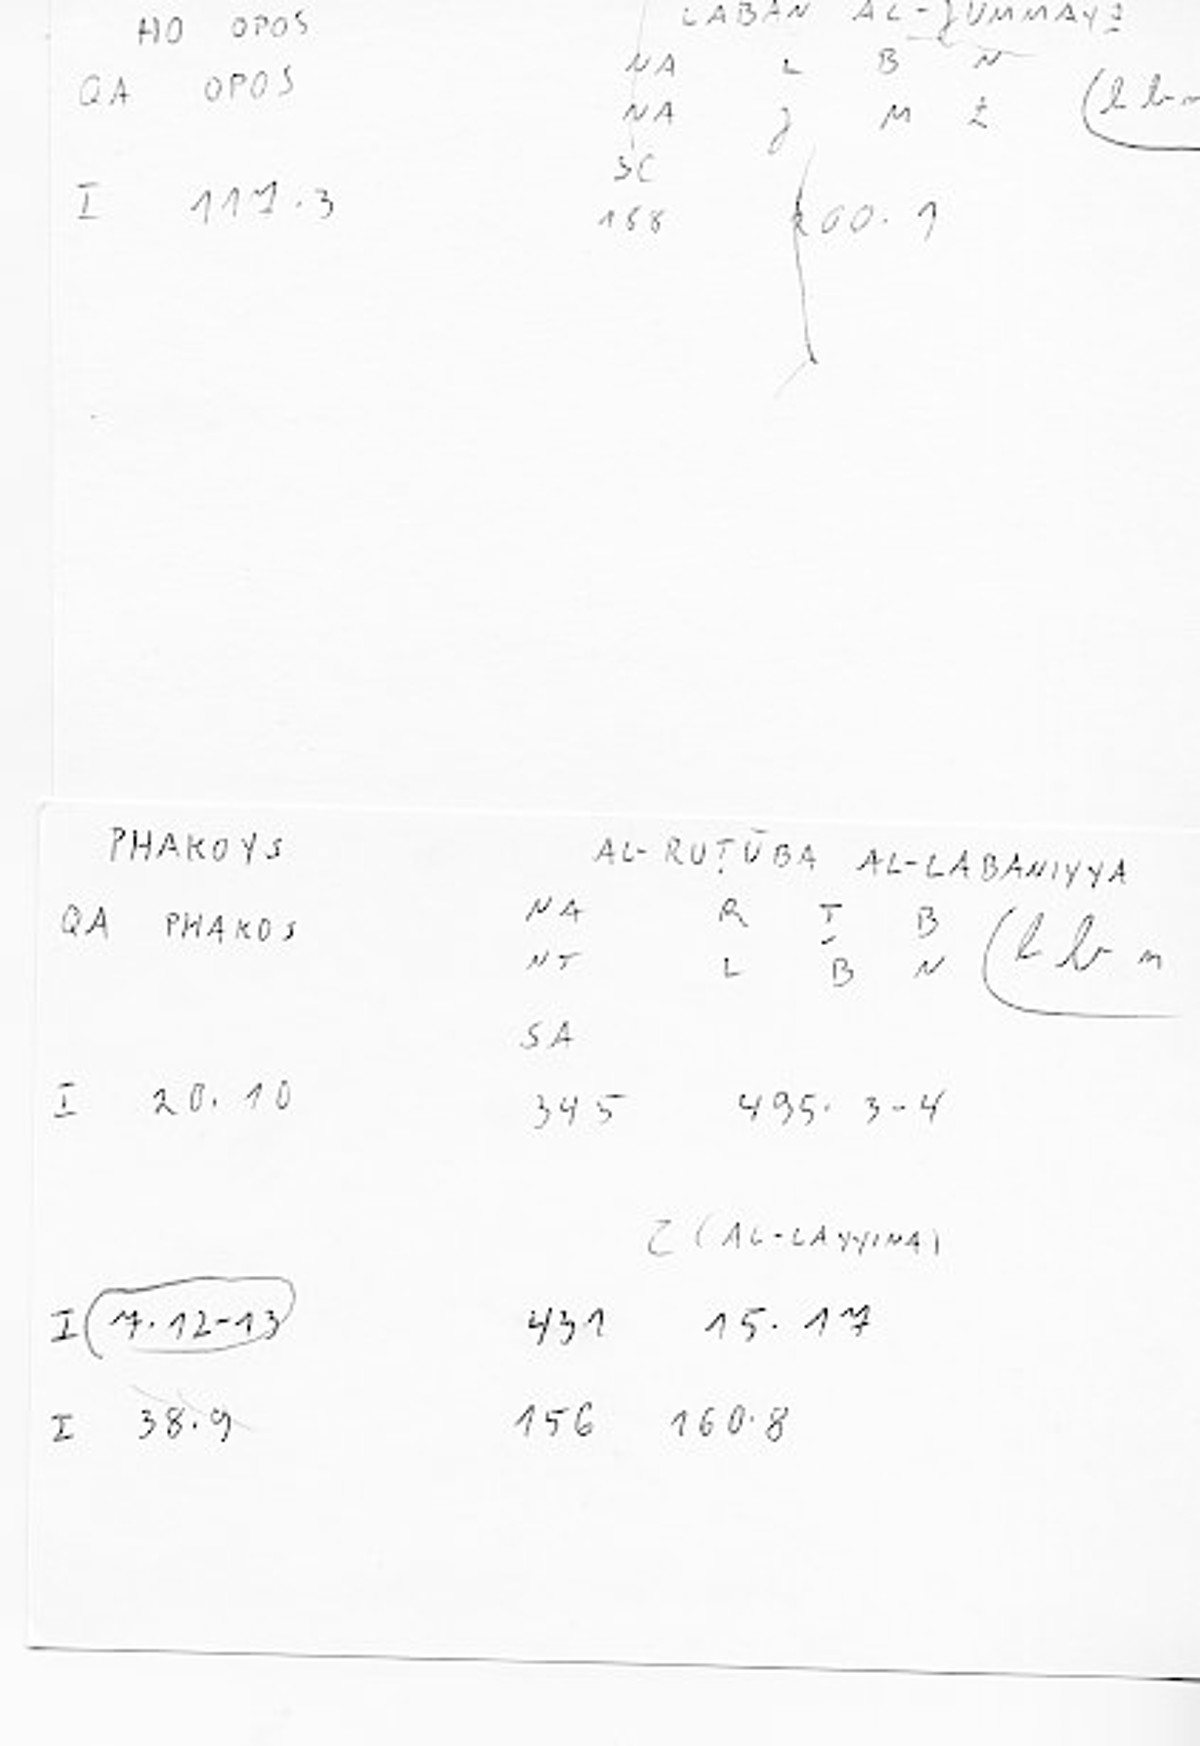 HO OPOS LABAN AL-ǦUMMAYZ
QA OPOS NA L B N
NA Ǧ M Z (l b n
SC
I 117.3 168 200.1
PHAKOYS AL-RUṬŪBA AL-LABANIYYA
QA PHAKOS NA R Ṭ B
NT L B N (l b n
SA
I 20.10 345 495.3-4
(AL-LAYYINA)
I 7.12-13 431 15.17
I 38.9 156 160.8